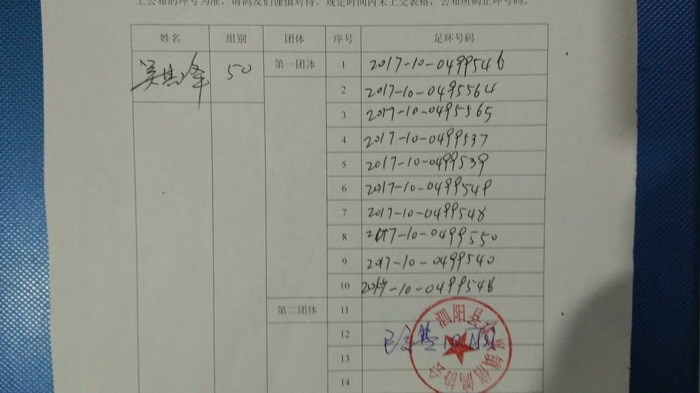 上公布的环号为准，请鸽友们谨慎对待，规定时间内未上交表格，公布所购正环号码。
姓名 组别 团体 序号 足环号码
50 第一团体 1 2017-10-0499546
2 2017-10-0495564
3 2017-10-0495565
4 2017-10-0499537
5 2017-10-0499539
6 2017-10-0499549
7 2017-10-0499548
8 2017-10-0499550
9 2017-10-0499540
10 2017-10-0499548
第二团体 11
12
13
14
泗阳县